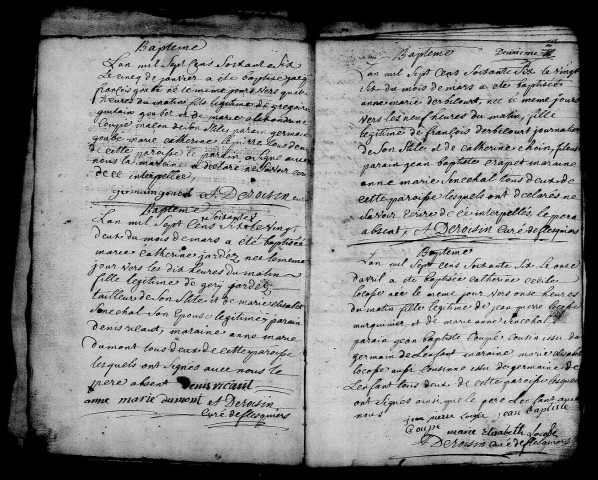 Bapteme
L'an mil Sept Cens Soixante Six
Le cinq de janvier a été baptisé
françois goube né le meme jour vers
heures du matin fils legitime de gregoire
goubet et de marie
Coupé de son stile parain germain
goube marie catherine
de cette paroisse le parain a signé avec
nous la maraine a declaré ne savoir ecri
re de ce interpellée
germain goube A Deroisin curé
Bapteme
soixante
L'an mil Sept Cens Six le vingt
deux du mois de mars a été baptisée
marie catherine gardez née le meme
jour vers les dix heures du matin
fille legitime de gery gardez
tailleur de son stile et de marie elisabet
Senechal Son Epouse legitime, parain
denis ricart, maraine anne marie
dumont tous deux de cette paroisse
lesquels ont signés avec nous le
pere absent denis ricart
anne marie dumont A Deroisin
Curé de flesquiers
Bapteme Deuxieme
L'an mil Sept Cens Soixante Six le vingt
six du mois de mars a été baptisée
anne marie derbécourt née le meme jour
vers les neuf heures du matin, fille
legitime de françois derbécourt journalier
de son stile et de catherine
parain jean baptiste crapet maraine
anne marie Senechal tous deux de
cette paroisse lesquels ont declarés ne
savoir ecrire de ce interpellés, le pere
absent, A Deroisin Curé de flesquiers
Bapteme
L'an mil Sept Cens Soixante Six le onze
d'avril a été baptisée catherine cecile
locqfe née le meme jour vers onze heures
du matin fille legitime de jean pierre locqfe
et de marie anne Senechal
parain jean baptiste Coupé Cousin issu de
germain de l'enfant maraine marie elisabet
locqfe aussi Cousine issue de germaine de
l'enfant tous deux de cette paroisse lesquels
ont signés ainsi que le pere de l'enfant avec
nous jean pierre jean baptiste
Coupe marie Elisabeth
A Deroisin Curé de flesquiers